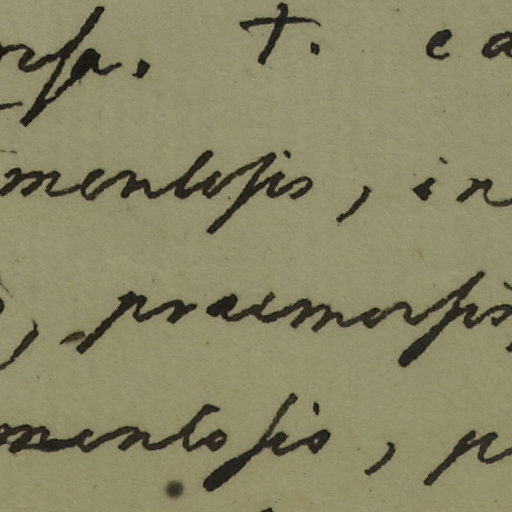 rsa. T. ca
mentosis, in
, praemorsis
mentosis, p